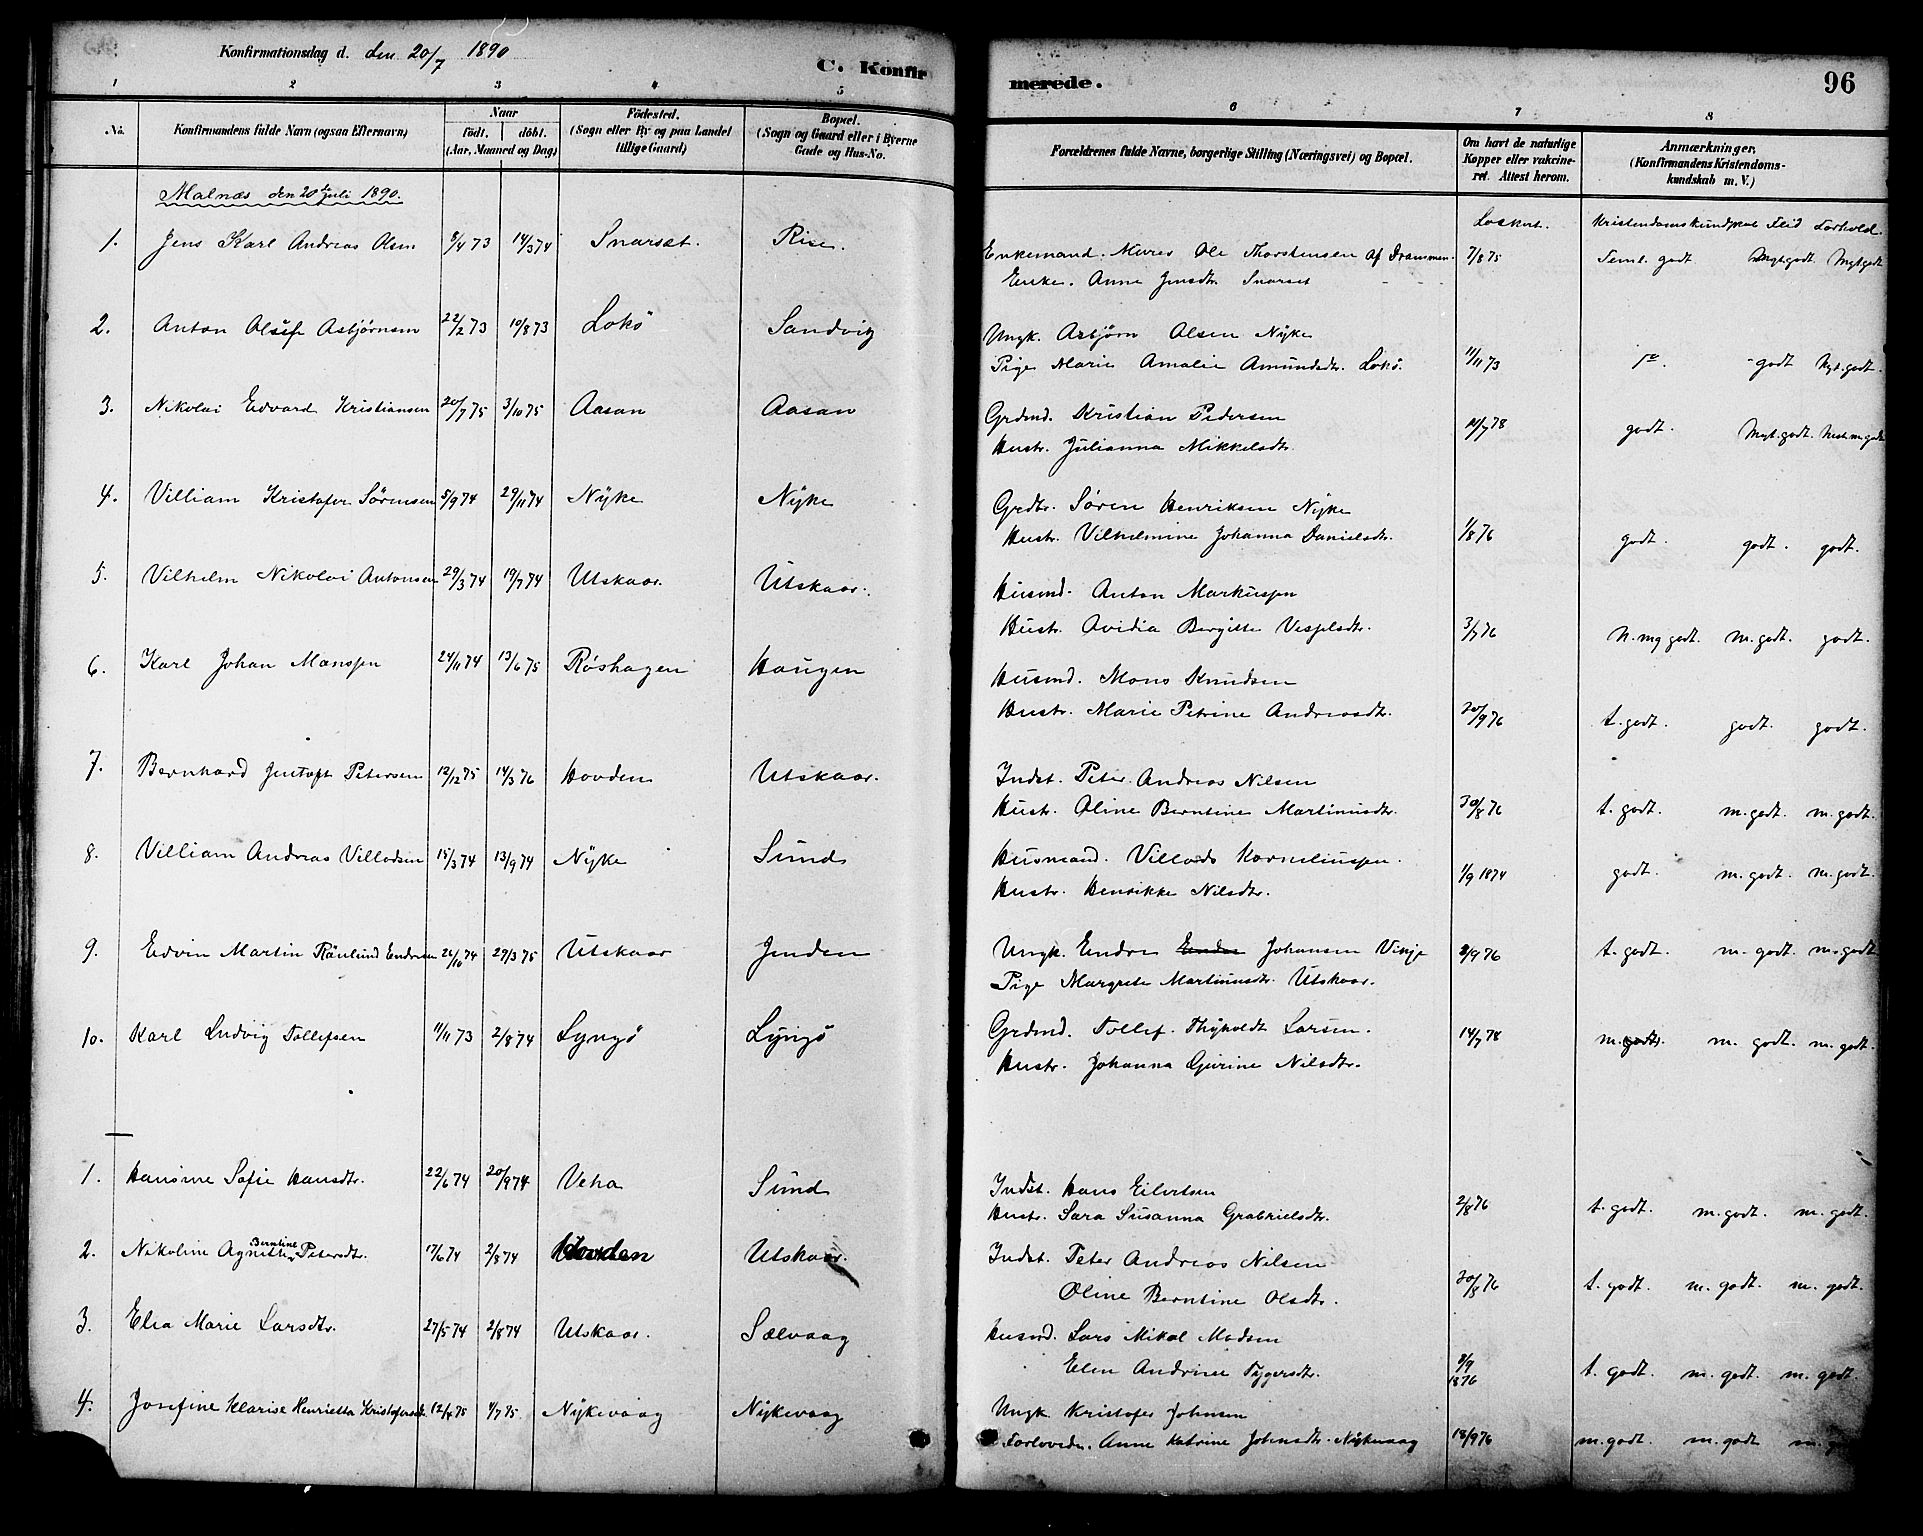 Konfirmationsdag d. den 20/7 1890
C. Konfirmerede.
96
1 2 3 4 5 6 7 8
No.
Konfirmandens fulde Navn (ogsaa Efternavn)
Naar
födt. döbt.
(Aar, Maaned og Dag)
Födested.
(Sogn eller By og paa Landet
tillige Gaard)
Bopæl.
(Sogn og Gaard eller i Byerne
Gade og Hus-No.
Forældrenes fulde Navne, borgerlige Stilling (Næringsvei) og Bopæl.
Om havt de naturlige
Kopper eller vakcine-
ret. Attest herom.
Anmærkninger,
(Konfirmandens Kristendoms-
kundskab m. V.)
Malnæs den 20de Juli 1890.
Kristendomskundskab Flid Forhold.
1. Jens Karl Andreas Olsen 8/4 73 14/3 74 Snarset. Rise. Enkemand. Murer Ole Thorstensen af Drammen. 7/8 75 Teml. godt Mgt. godt Mgt godt
Enke. Anne Jensdtr. Snarset
2. Anton Asbjørnsen 22/2 73 10/8 73 Lokö Sandvig Ungk. Asbjörn Olsen Nÿke
Pige Marie Amalie Amundsdtr. Lokö. 11/11 73 godt Mgt. godt.
3. Nikolai Edvard Kristiansen 20/7 75 3/10 75 Aasan Aasan Grdmd. Kristian Pedersen
Hustr. Julianna Mikkelsdtr. 11/7 78 godt. Mgt. godt. Næst. m. godt
4. Villiam Kristofer Sörensen 5/9 74 29/11 74 Nÿke Nÿke Grdbr. Sören Henriksen Nÿke
Hustr. Vilhelmine Johanna Danielsdtr. 1/8 76 godt. godt. godt.
5. Vilhelm Nikolai Antonsen 29/3 74 19/7 74 Utskaar. Utskaar. Husmd. Anton Markussen
Hustr. Avidia Bergitte Vesselsdtr. 3/7 76 N. mg godt. m. godt. godt.
6. Karl Johan Monssen 24/11 74 13/6 75 Röshagen Haugen Husmd. Mons Knudsen
Hustr. Marie Petrine Andreasdtr. 20/9 76 t. godt. godt. godt.
7. Bernhard Justoft Petersen 12/12 75 14/3 76 Hovden Utskaar. Indst. Peter Andreas Nilsen
Hustr. Oline Berntine Martinusdtr. 30/8 76 t. godt. m. godt. m. godt.
8. Villiam Andreas Villadsen 15/3 74 13/9 74 Nÿke Sund Husmand. Villads Korneliussen.
Hustr. Henrikke Nilsdtr. 1/9 1874 godt. m. godt. m. godt.
9. Edvin Martin Rånlund Endresen 26/10 74 29/3 75 Utskaar Jenden Ungk. Endre Endre Johansen Vinje 2/9 76 t. godt. m. godt. m. godt
Pige Margrete Martinusdtr. Utskaar.
10. Karl Ludvig Tollefsen 11/11 73 2/8 74 Lyngö Lÿngö Grdmd. Tollef Thÿholdt Larsen. 14/7 78 m. godt. m. godt. m. godt.
Hustr. Johanna Gurine Nilsdtr.
1. Hansine Sofie Hansdtr. 22/6 74 20/9 74 Veha Sund Indst. Hans Eilertsen
Hustr. Sara Susanna Grabrielsdtr. 2/8 76 t. godt. m. godt. m. godt.
2. Nikoline Agnethe Berntine Petersdtr. 17/6 74 2/8 74 Hovden Utskaar. Indst. Peter Andreas Nilsen
Oline Berntine Olsdtr. 30/8 76 t. godt. m. godt. m. godt.
3. Elea Marie Larsdtr. 27/5 74 2/8 74 Utskaar. Sælvaag Husmd. Lars Mikal Madsen
Elen Andrine Tygersdtr. 8/9 1876 t. godt. m. godt. m. godt
4. Josefine Klarise Henrietta Kristofersdtr. 12/4 75 4/7 75. Nÿkevaag Nÿkevaag Ungk. Kristofer Johnsen
Forlovede. Anne Katrine Johnsdtr. Nÿkevaag 18/9 76 m. godt. m. godt